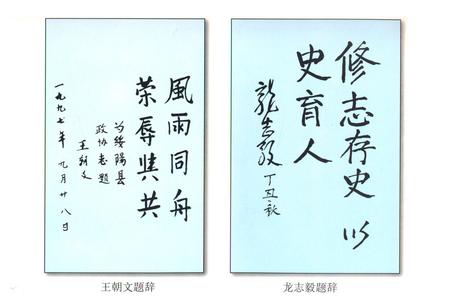 風雨同舟
荣辱與共
为绥陽县
政协志題
王朝文
一九九七年九月廿八日
王朝文题辞
修志存史以
史育人
龍志毅
丁丑秋
龙志毅题辞